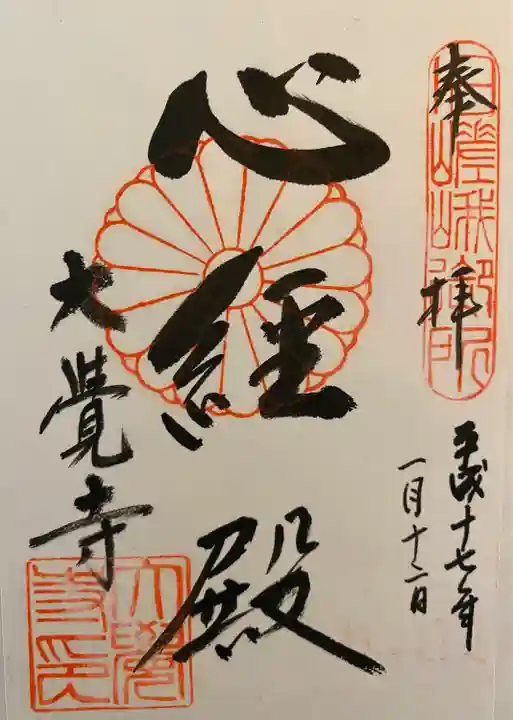 奉拝
旧嵯峨御所
平成十七年
一月十二日
心經殿
大覺寺
大覺寺印